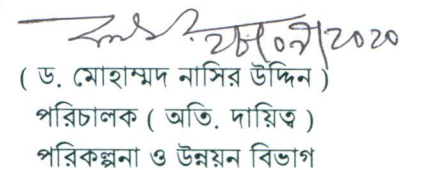 ২৮/০৯/2020
( ড. মোহাম্মদ নাসির উদ্দিন )
পরিচালক ( অতি. দায়িত্ব )
পরিকল্পনা ও উন্নয়ন বিভাগ